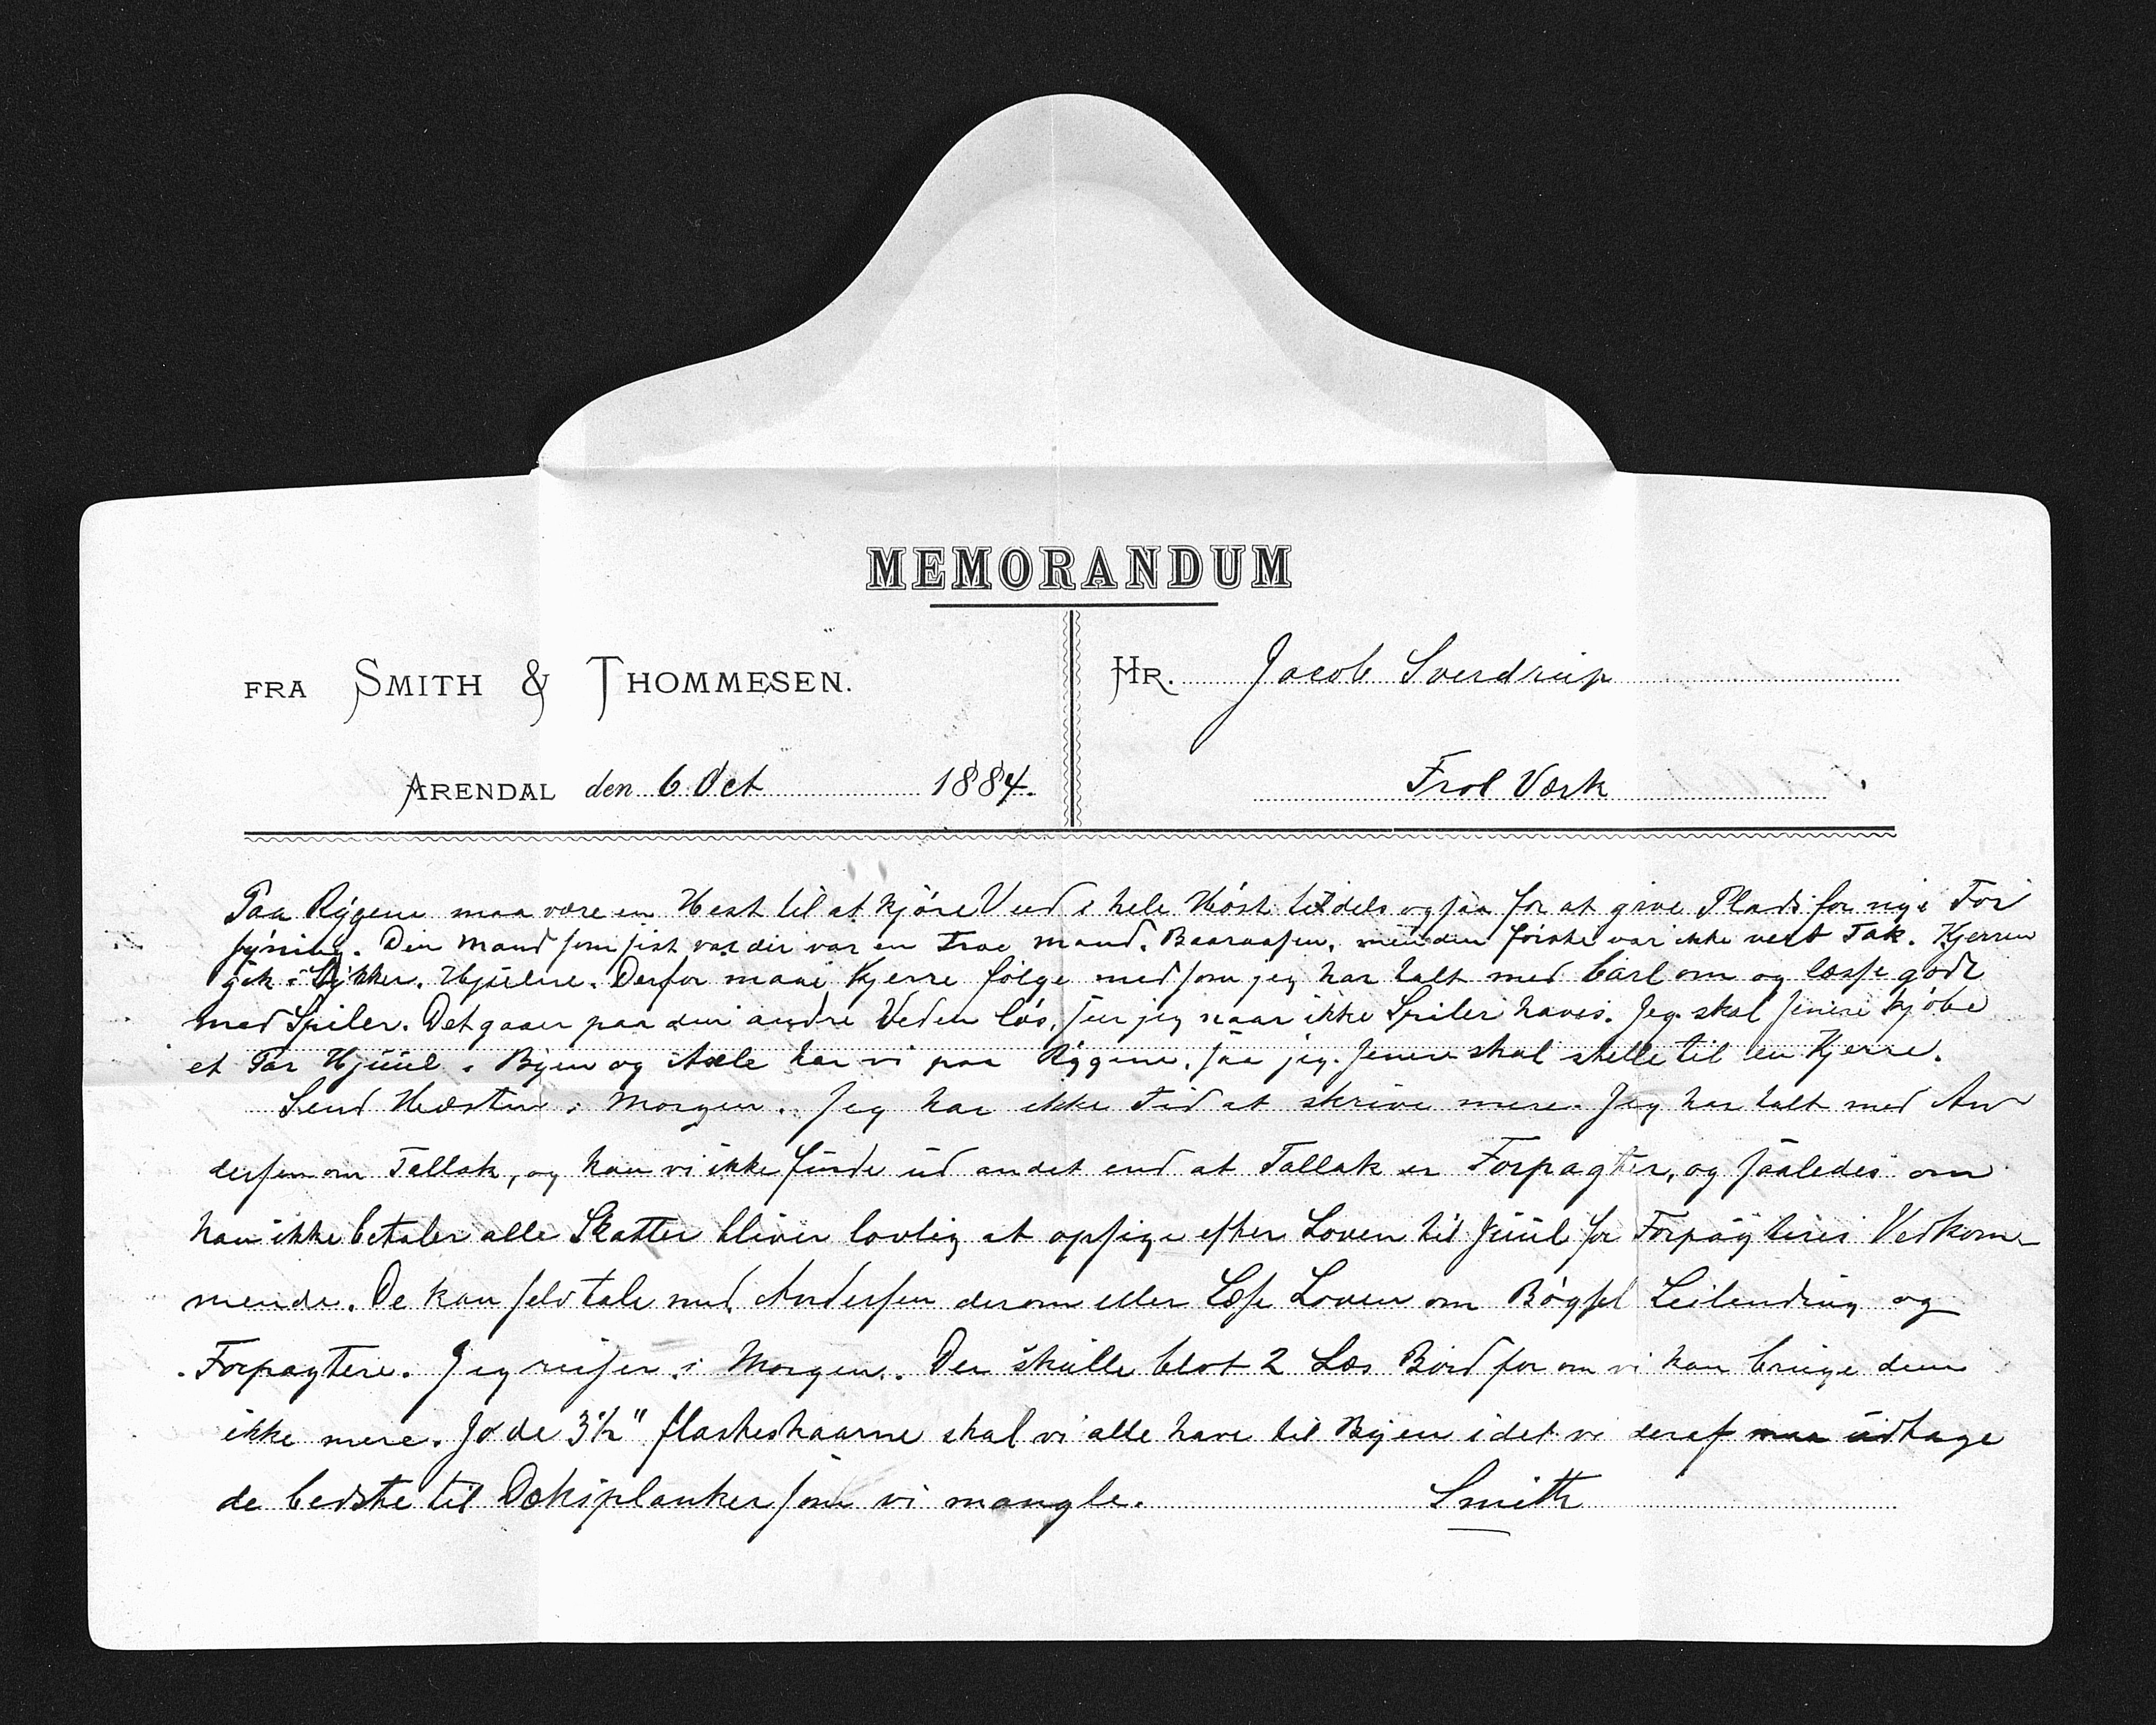 MEMORANDUM
FRA SMITH & THOMMESEN.
HR. Jacob Sverdrup
ARENDAL den 6 Oct 1884.
Frol Værk
Paa Rygene maa være en Hest til at kjøre Ved i hele Høst tildels ogsaa for at give Plads for nye For
syning. Den Mand som sist var der var en Troe mand, Baaraasen, men den første var ikke vert Tak. Kjerren
gik i Stykker. Hjulene. Derfor maa i Kjerre følge med som jeg har talt med Carl om og læsse godt
med Spiler. Det gaaer paa den andre Veden løs, ser jeg naar ikke Spiler haves. Jeg skal senere kjøbe
et Par Hjuul i Byen og Axle har vi paa Rygene, saa jeg senere skal stelle til en Kjerre.
Send Hæsten i Morgen. Jeg har ikke Tid at skrive mere. Jeg har talt med An
dersen om Tallak, og kan vi ikke finde ud andet end at Tallak er Forpagter, og saaledes om
han ikke betaler alle Skatter bliver lovlig at opsige efter Loven til Juul for Forpagteres Vedkom-
mende. De kan selv tale med Andersen derom eller Læse Loven om Bøgsel Leilending og
Forpagtere. Jeg reiser i Morgen. Der skulle blot 2 Læs Bord for om vi kan bruge dem
ikke mere. Jo de 3½" flaskeskaarne skal vi alle have til Byen idet vi deraf maa udtage
de bedste til Dæksplanker som vi mangle.
Smith